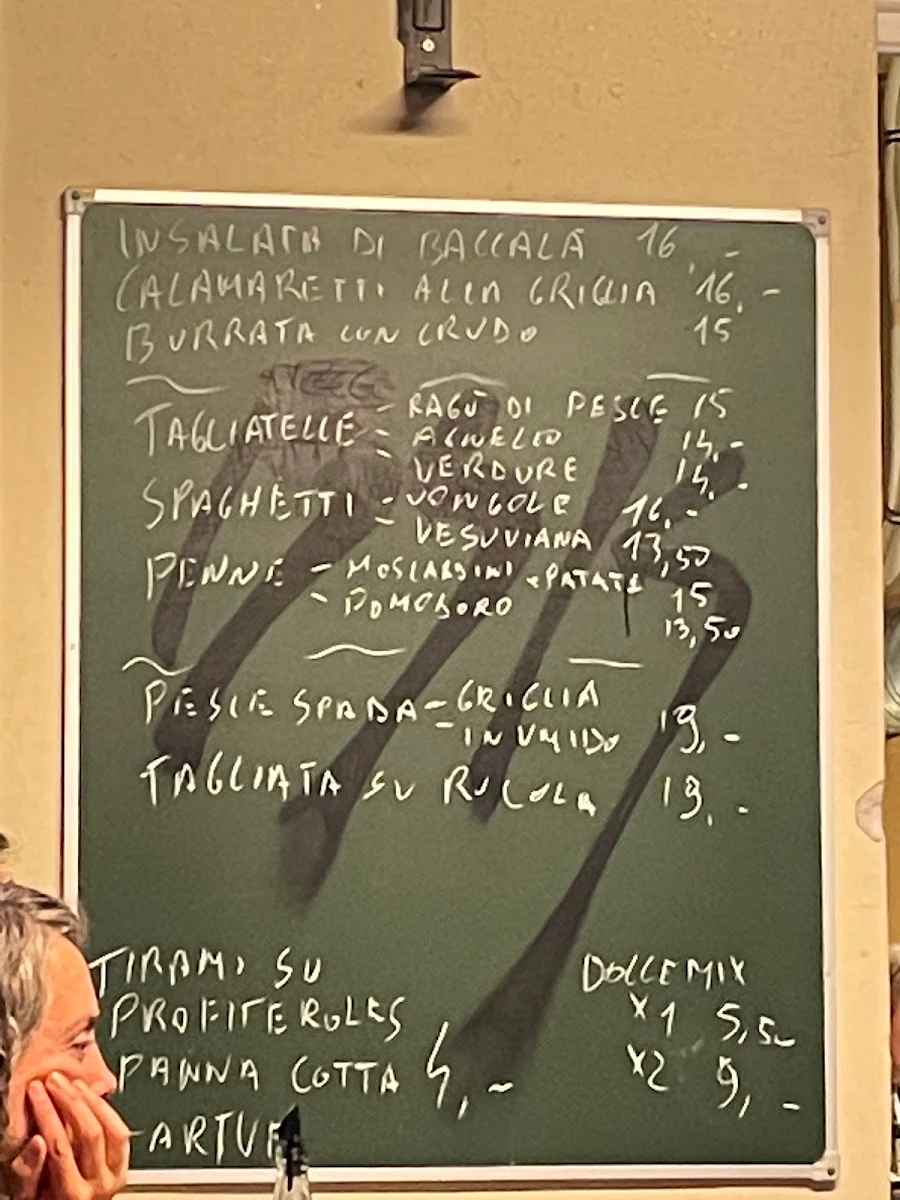 INSALATA DI BACCALÀ 16,-
CALAMARETTI ALLA GRIGLIA 16,-
BURRATA CON CRUDO 15
TAGLIATELLE - RAGÙ DI PESCE 15
- AGNELLO 14,-
- VERDURE 14,-
SPAGHETTI - VONGOLE 16,-
- VESUVIANA 13,50
PENNE - MOSCARDINI + PATATE 15
- POMODORO 13,50
PESCE SPADA - GRIGLIA
- IN UMIDO 19,-
TAGLIATA SU RUCOLA 19,-
TIRAMI SU
PROFITEROLES
PANNA COTTA 4,-
TARTUF
DOLCE MIX
X1 5,50
X2 9,-